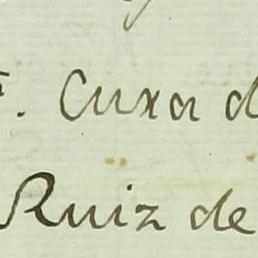 Cuxa d
Ruiz de